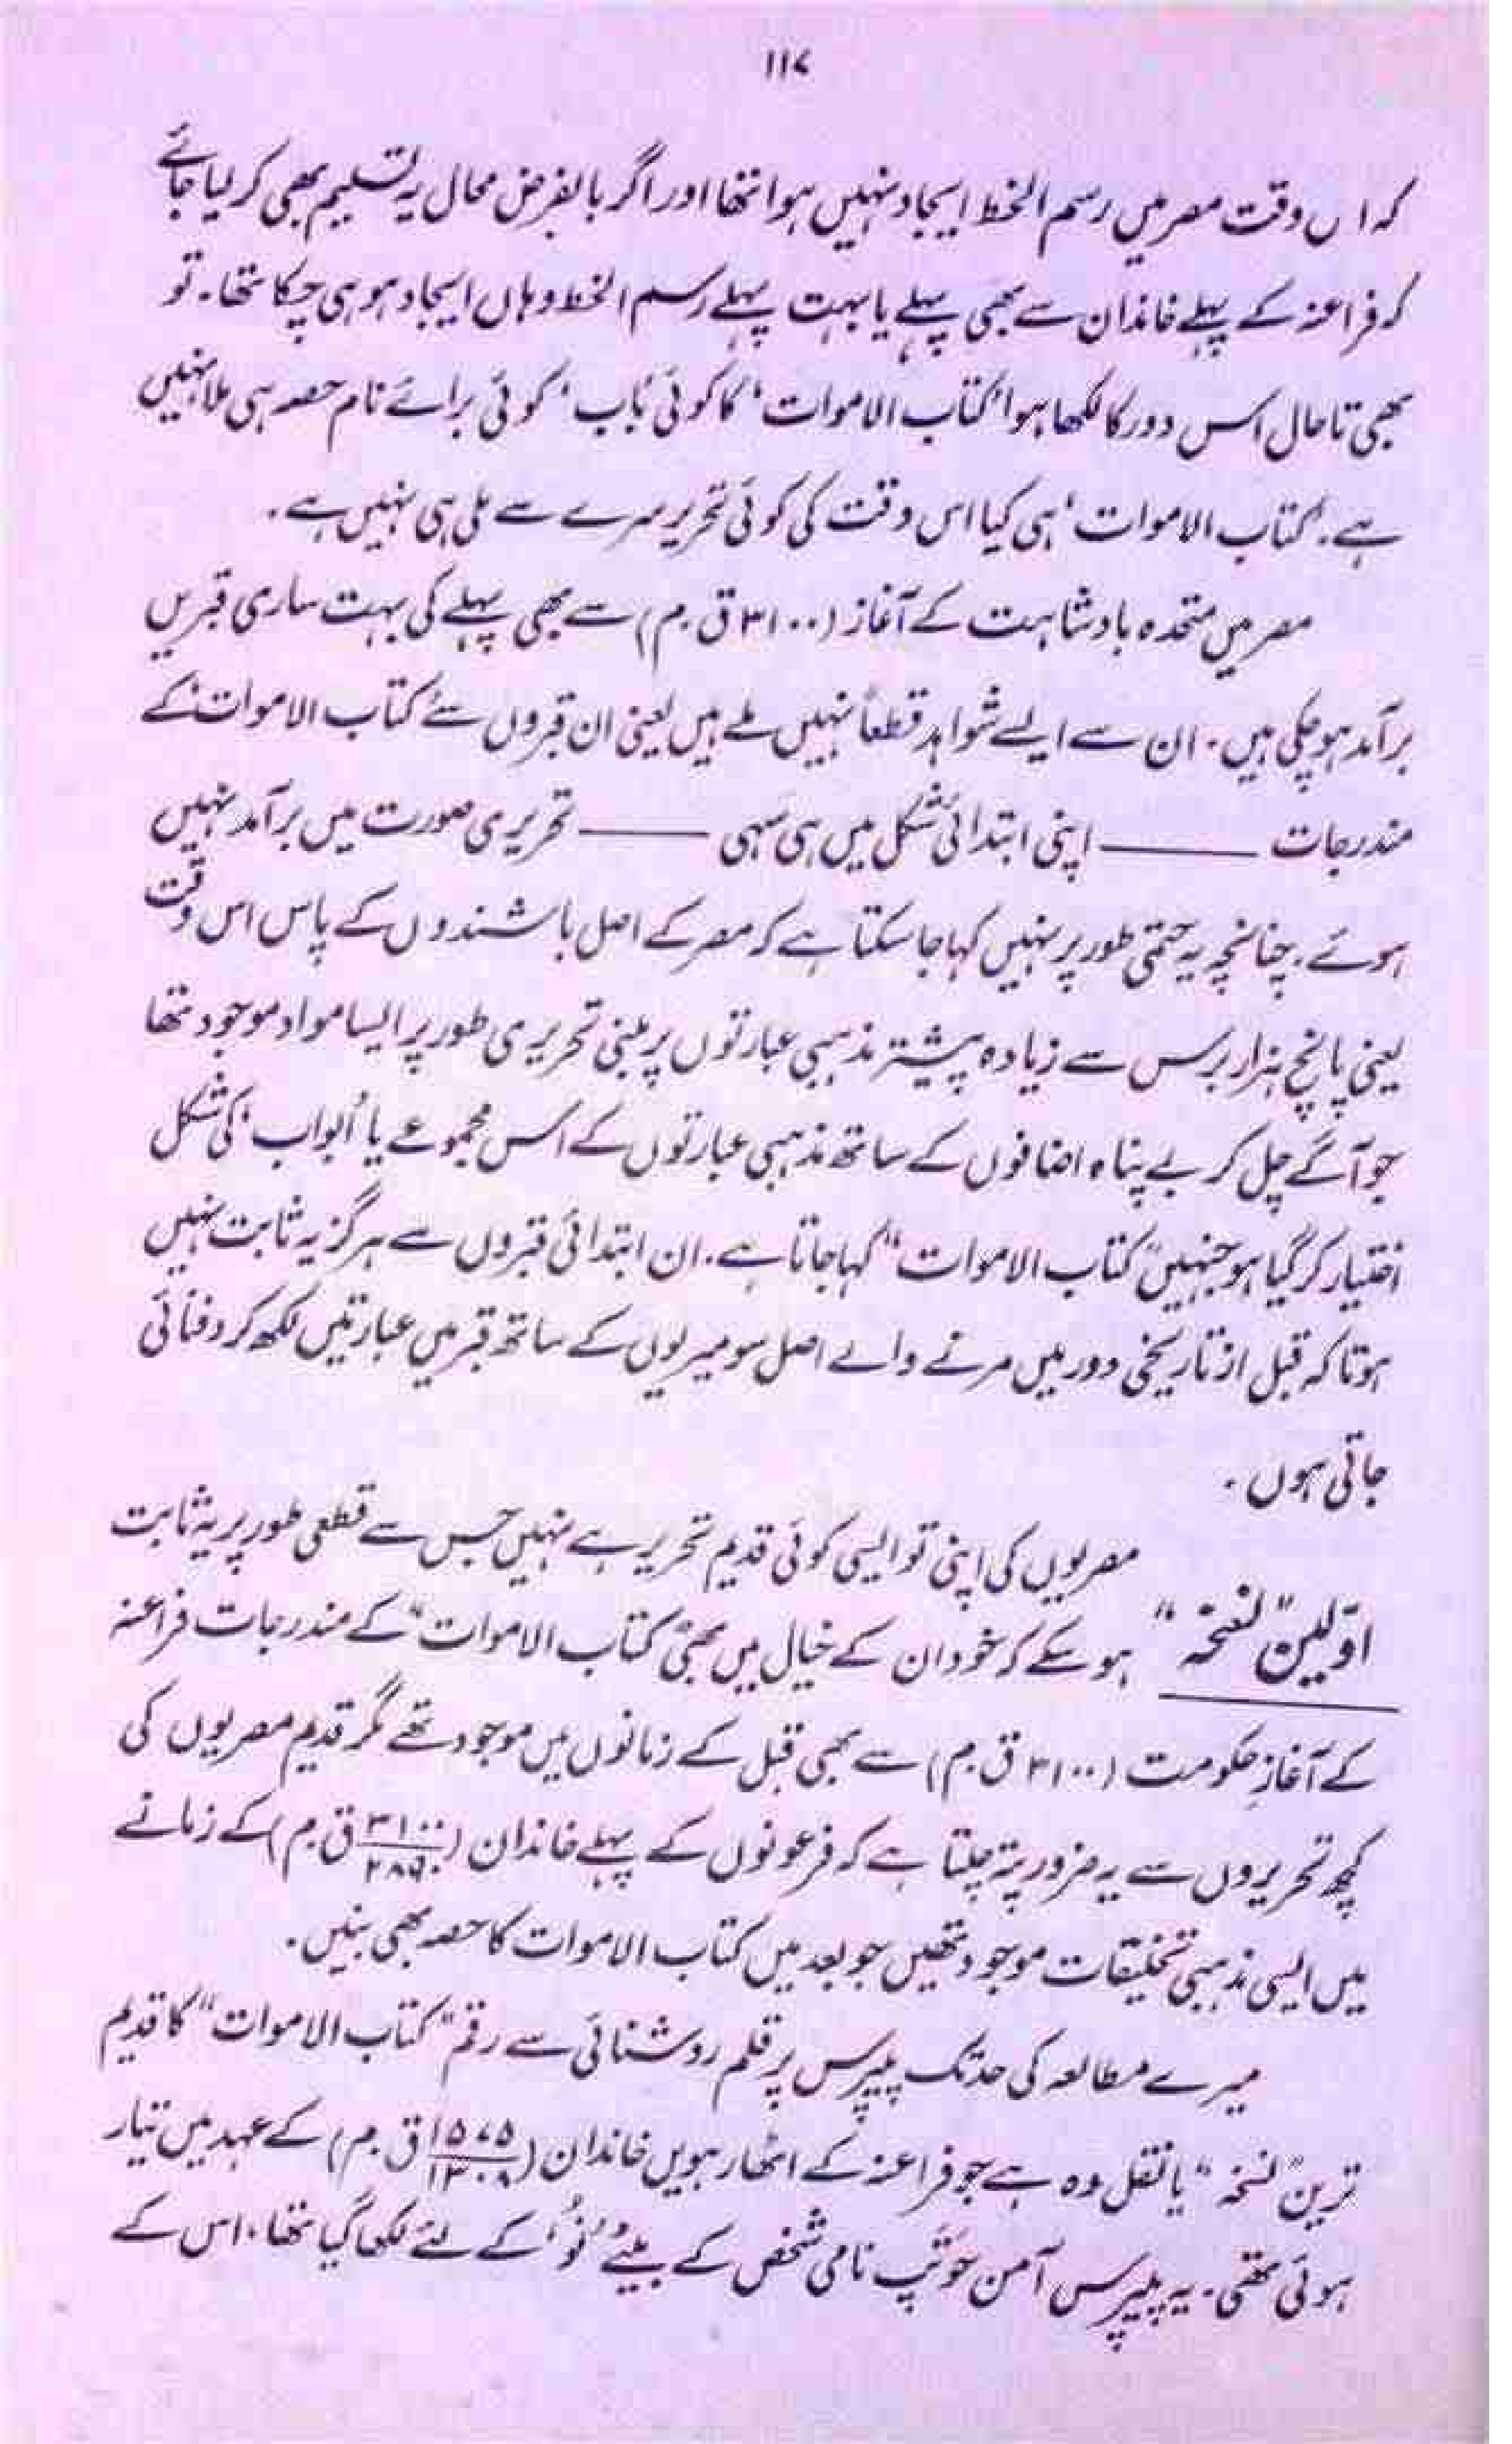 ۱۱۷
کہ اس وقت مصر میں رسم الخط ایجاد نہیں ہوا تھا اور اگر بالفرض محال یہ تسلیم بھی کر لیا جائے
کہ فراعنہ کے پہلے خاندان سے بھی پہلے یا بہت پہلے رسم الخط وہاں ایجاد ہو ہی چکا تھا۔ تو
بھی تا حال اس دور کا لکھا ہوا ’کتاب الاموات‘ کا کوئی ’باب‘ کوئی برائے نام حصہ ہی ملا نہیں
ہے۔ ’کتاب الاموات‘ ہی کیا اس وقت کی کوئی تحریر سرے سے ملی ہی نہیں ہے۔
مصر میں متحدہ بادشاہت کے آغاز (۳۱۰۰ ق۔م) سے بھی پہلے کی بہت ساری قبریں
برآمد ہو چکی ہیں۔ ان سے ایسے شواہد قطعاً نہیں ملے ہیں یعنی ان قبروں سے ’کتاب الاموات‘ کے
مندرجات ——— اپنی ابتدائی شکل میں ہی سہی ——— تحریری صورت میں برآمد نہیں
ہوئے۔ چنانچہ یہ حتمی طور پر نہیں کہا جا سکتا ہے کہ مصر کے اصل باشندوں کے پاس اس وقت
یعنی پانچ ہزار برس سے زیادہ پیشتر مذہبی عبارتوں پر مبنی تحریری طور پر ایسا مواد موجود تھا
جو آگے چل کر بے پناہ اضافوں کے ساتھ مذہبی عبارتوں کے اس مجموعے یا ’ابواب‘ کی شکل
اختیار کر گیا ہو جنہیں ”کتاب الاموات“ کہا جاتا ہے۔ ان ابتدائی قبروں سے ہرگز یہ ثابت نہیں
ہوتا کہ قبل از تاریخی دور میں مرنے والے اصل سومیریوں کے ساتھ قبر میں عبارتیں لکھ کر دفنائی
جاتی ہوں۔
مصریوں کی اپنی تو ایسی کوئی قدیم تحریر ہے نہیں جس سے قطعی طور پر یہ ثابت
اوّلین ”نسخہ“ ہو سکے کہ خود ان کے خیال میں بھی ”کتاب الاموات“ کے مندرجات فراعنہ
کے آغازِ حکومت (۳۱۰۰ ق۔م) سے بھی قبل کے زمانوں میں موجود تھے مگر قدیم مصریوں کی
کچھ تحریروں سے یہ ضرور پتہ چلتا ہے کہ فرعونوں کے پہلے خاندان (۳۱۰۰/۲۸۹۰ ق۔م) کے زمانے
میں ایسی مذہبی تخلیقات موجود تھیں جو بعد میں کتاب الاموات کا حصہ بھی بنیں۔
میرے مطالعہ کی حد تک پیپرس پر قلم روشنائی سے رقم ”کتاب الاموات“ کا قدیم
ترین ”نسخہ“ یا نقل وہ ہے جو فراعنہ کے اٹھارہویں خاندان (۱۵۷۵/۱۳۰۸ ق۔م) کے عہد میں تیار
ہوئی تھی۔ یہ پیپرس آمن حوتپ نامی شخص کے بیٹے ’نُو‘ کے لئے لکھا گیا تھا، اس کے